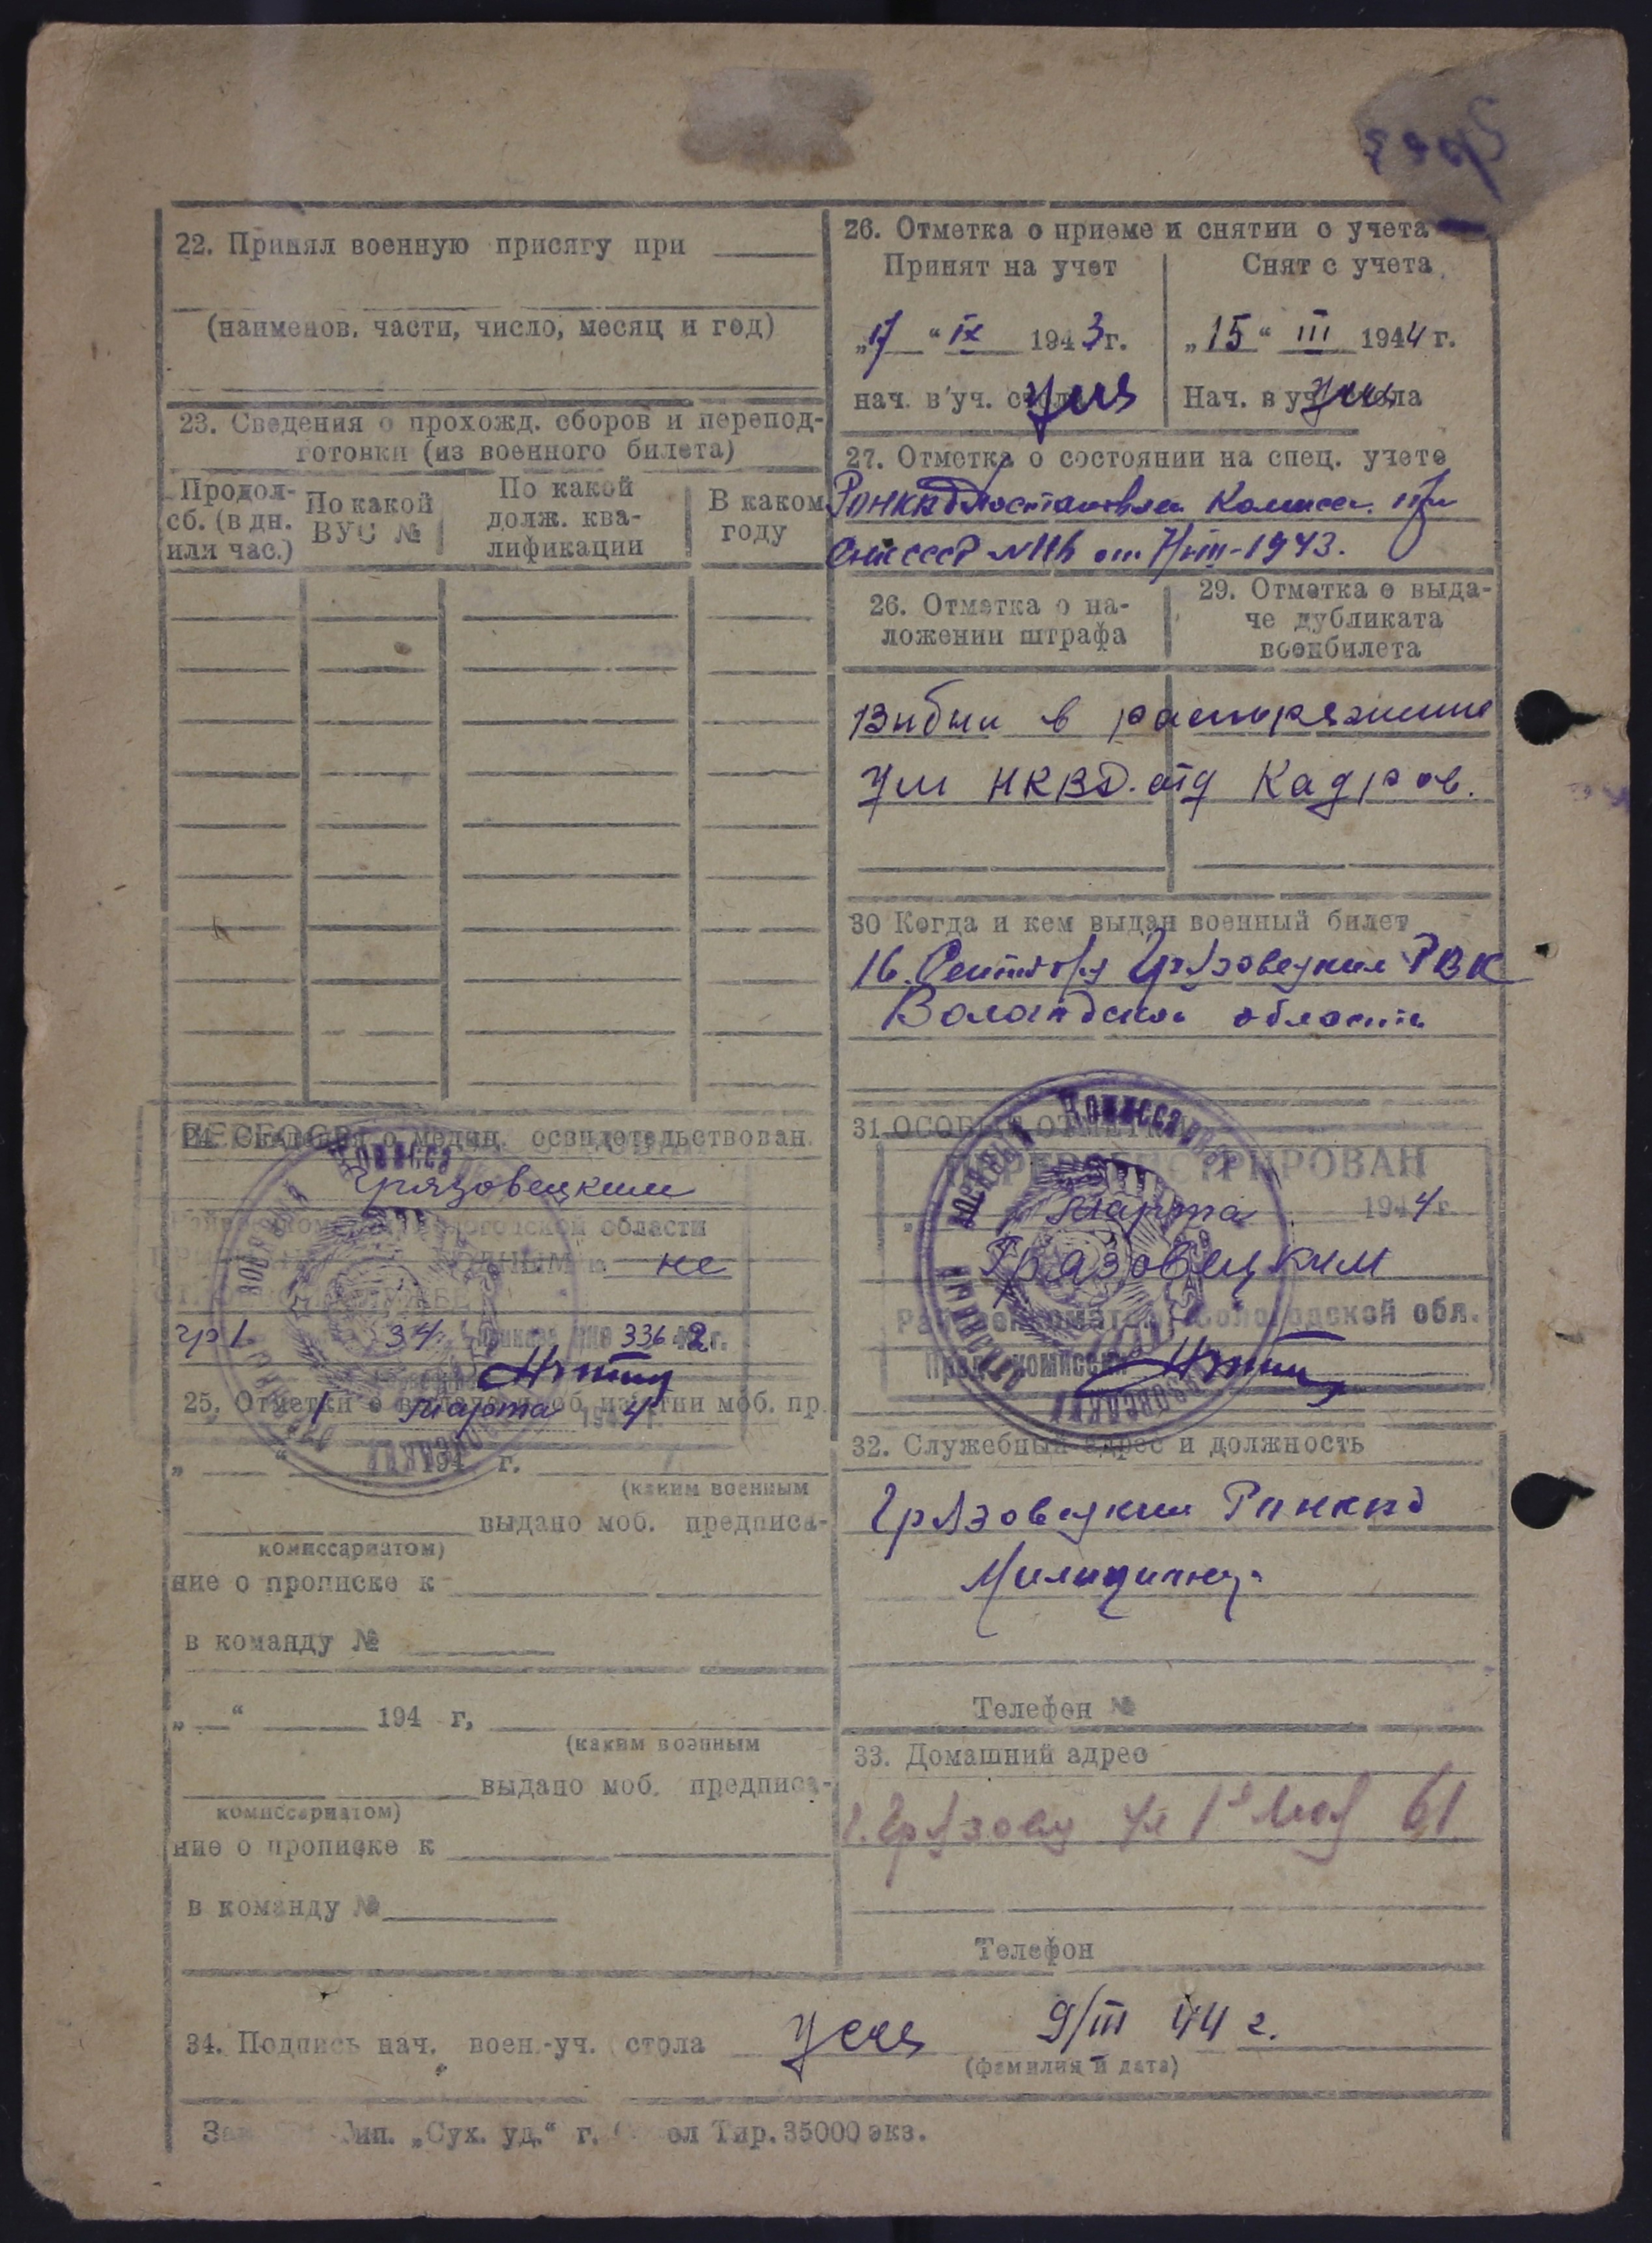 22. Принял военную присягу при
(наименов. части, число, месяц и год)
23. Сведения о прохожд. сборов и перепод-
готовки (из военного билета)
Продол-
сб. (в дн.
или час.)
По какой
ВУС №
По какой
долж. ква-
лификации
В каком
году
24. Сведения о медиц. освидетельствован.
Грязовецким
Вологодской области
не
гр 1 34 336 42 г.
1 Марта 4
25. Отметки о моб. пр.
„ “ 194 г.
(каким военным
выдано моб. предписа-
комиссариатом)
ние о прописке к
в команду №
„ “ 194 г,
(каким военным
выдано моб. предписа-
комиссариатом)
ние о прописке к
в команду №
26. Отметка о приеме и снятии с учета
Принят на учет
„17“ IX 1943 г.
нач. в уч. стола
Снят с учета
„15“ III 1944 г.
Нач. в уч. стола
27. Отметка о состоянии на спец. учете
РОНКВД
СНК СССР от 1943.
26. Отметка о на-
ложении штрафа
29. Отметка о выда-
че дубликата
воен­билета
в распоряжение
НКВД. отд Кадров.
30 Когда и кем выдан военный билет
16. Сентября Грязовецким РВК
Вологодской области
31 ОСОБЫЕ ОТМЕТКИ
ПЕРЕРЕГИСТРИРОВАН
Марта 1944 г.
Грязовецким
Райвоенкоматом Вологодской обл.
32. Служебный адрес и должность
Грязовецкий
Милиционер
Телефон №
33. Домашний адрес
г. Грязовец ул 1е Мая 61
Телефон
34. Подпись нач. воен.-уч. стола 9/III 44 г.
(фамилия и дата)
тип. „Сух. уд.“ г. Тир. 35000 экз.